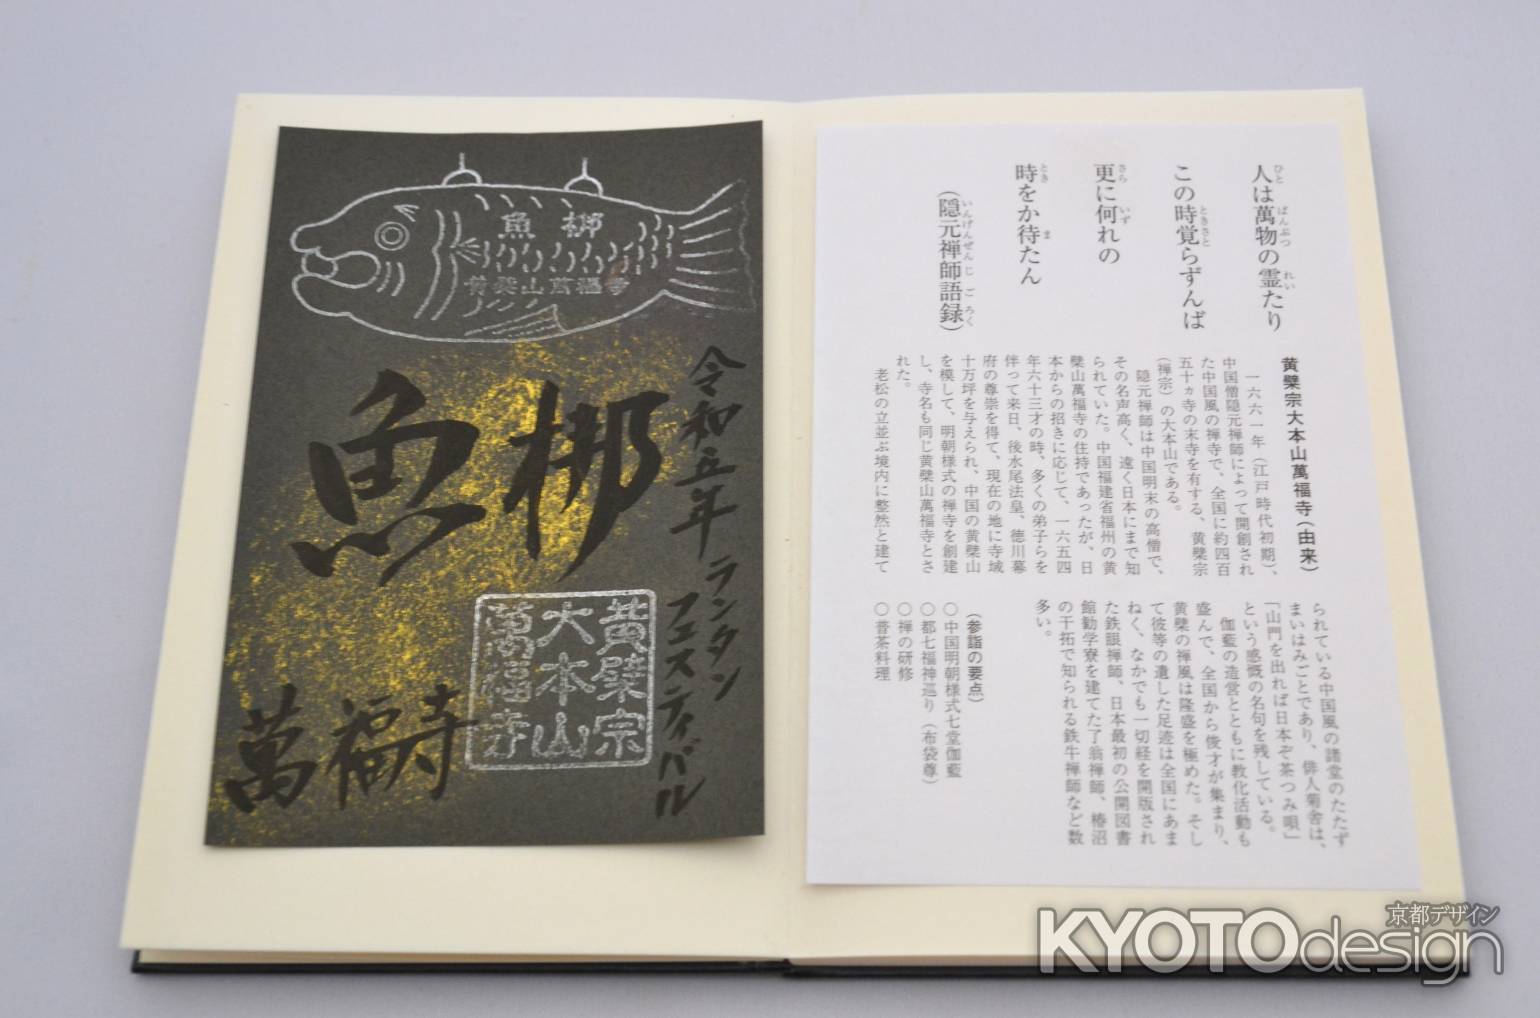 魚梆
黄檗山萬福寺
令和五年 ランタン
フェスティバル
魚梆
黄檗宗
大本山
萬福寺
萬福寺
人は萬物の霊たり
この時覚らずんば
更に何れの
時をか待たん
(隠元禅師語録)
黄檗宗大本山萬福寺(由来)
一六六一年(江戸時代初期)、
中国僧隠元禅師によって開創され
た中国風の禅寺で、全国に約四百
五十ヵ寺の末寺を有する、黄檗宗
(禅宗)の大本山である。
隠元禅師は中国明末の高僧で、
その名声高く、遠く日本にまで知
られていた。中国福建省福州の黄
檗山萬福寺の住持であったが、日
本からの招きに応じて、一六五四
年六十三才の時、多くの弟子らを
伴って来日、後水尾法皇、徳川幕
府の尊崇を得て、現在の地に寺域
十万坪を与えられ、中国の黄檗山
を模して、明朝様式の禅寺を創建
し、寺名も同じ黄檗山萬福寺とさ
れた。
老松の立並ぶ境内に整然と建て
られている中国風の諸堂のたたず
まいはみごとであり、俳人菊舎は、
「山門を出れば日本ぞ茶つみ唄」
という感慨の名句を残している。
伽藍の造営とともに教化活動も
盛んで、全国から俊才が集まり、
黄檗の禅風は隆盛を極めた。そし
て彼等の遺した足迹は全国にあま
ねく、なかでも一切経を開版され
た鉄眼禅師、日本最初の公開図書
館勧学寮を建てた了翁禅師、椿沼
の干拓で知られる鉄牛禅師など数
多い。
(参詣の要点)
○中国明朝様式七堂伽藍
○都七福神巡り(布袋尊)
○禅の研修
○普茶料理
京都デザイン
KYOTOdesign